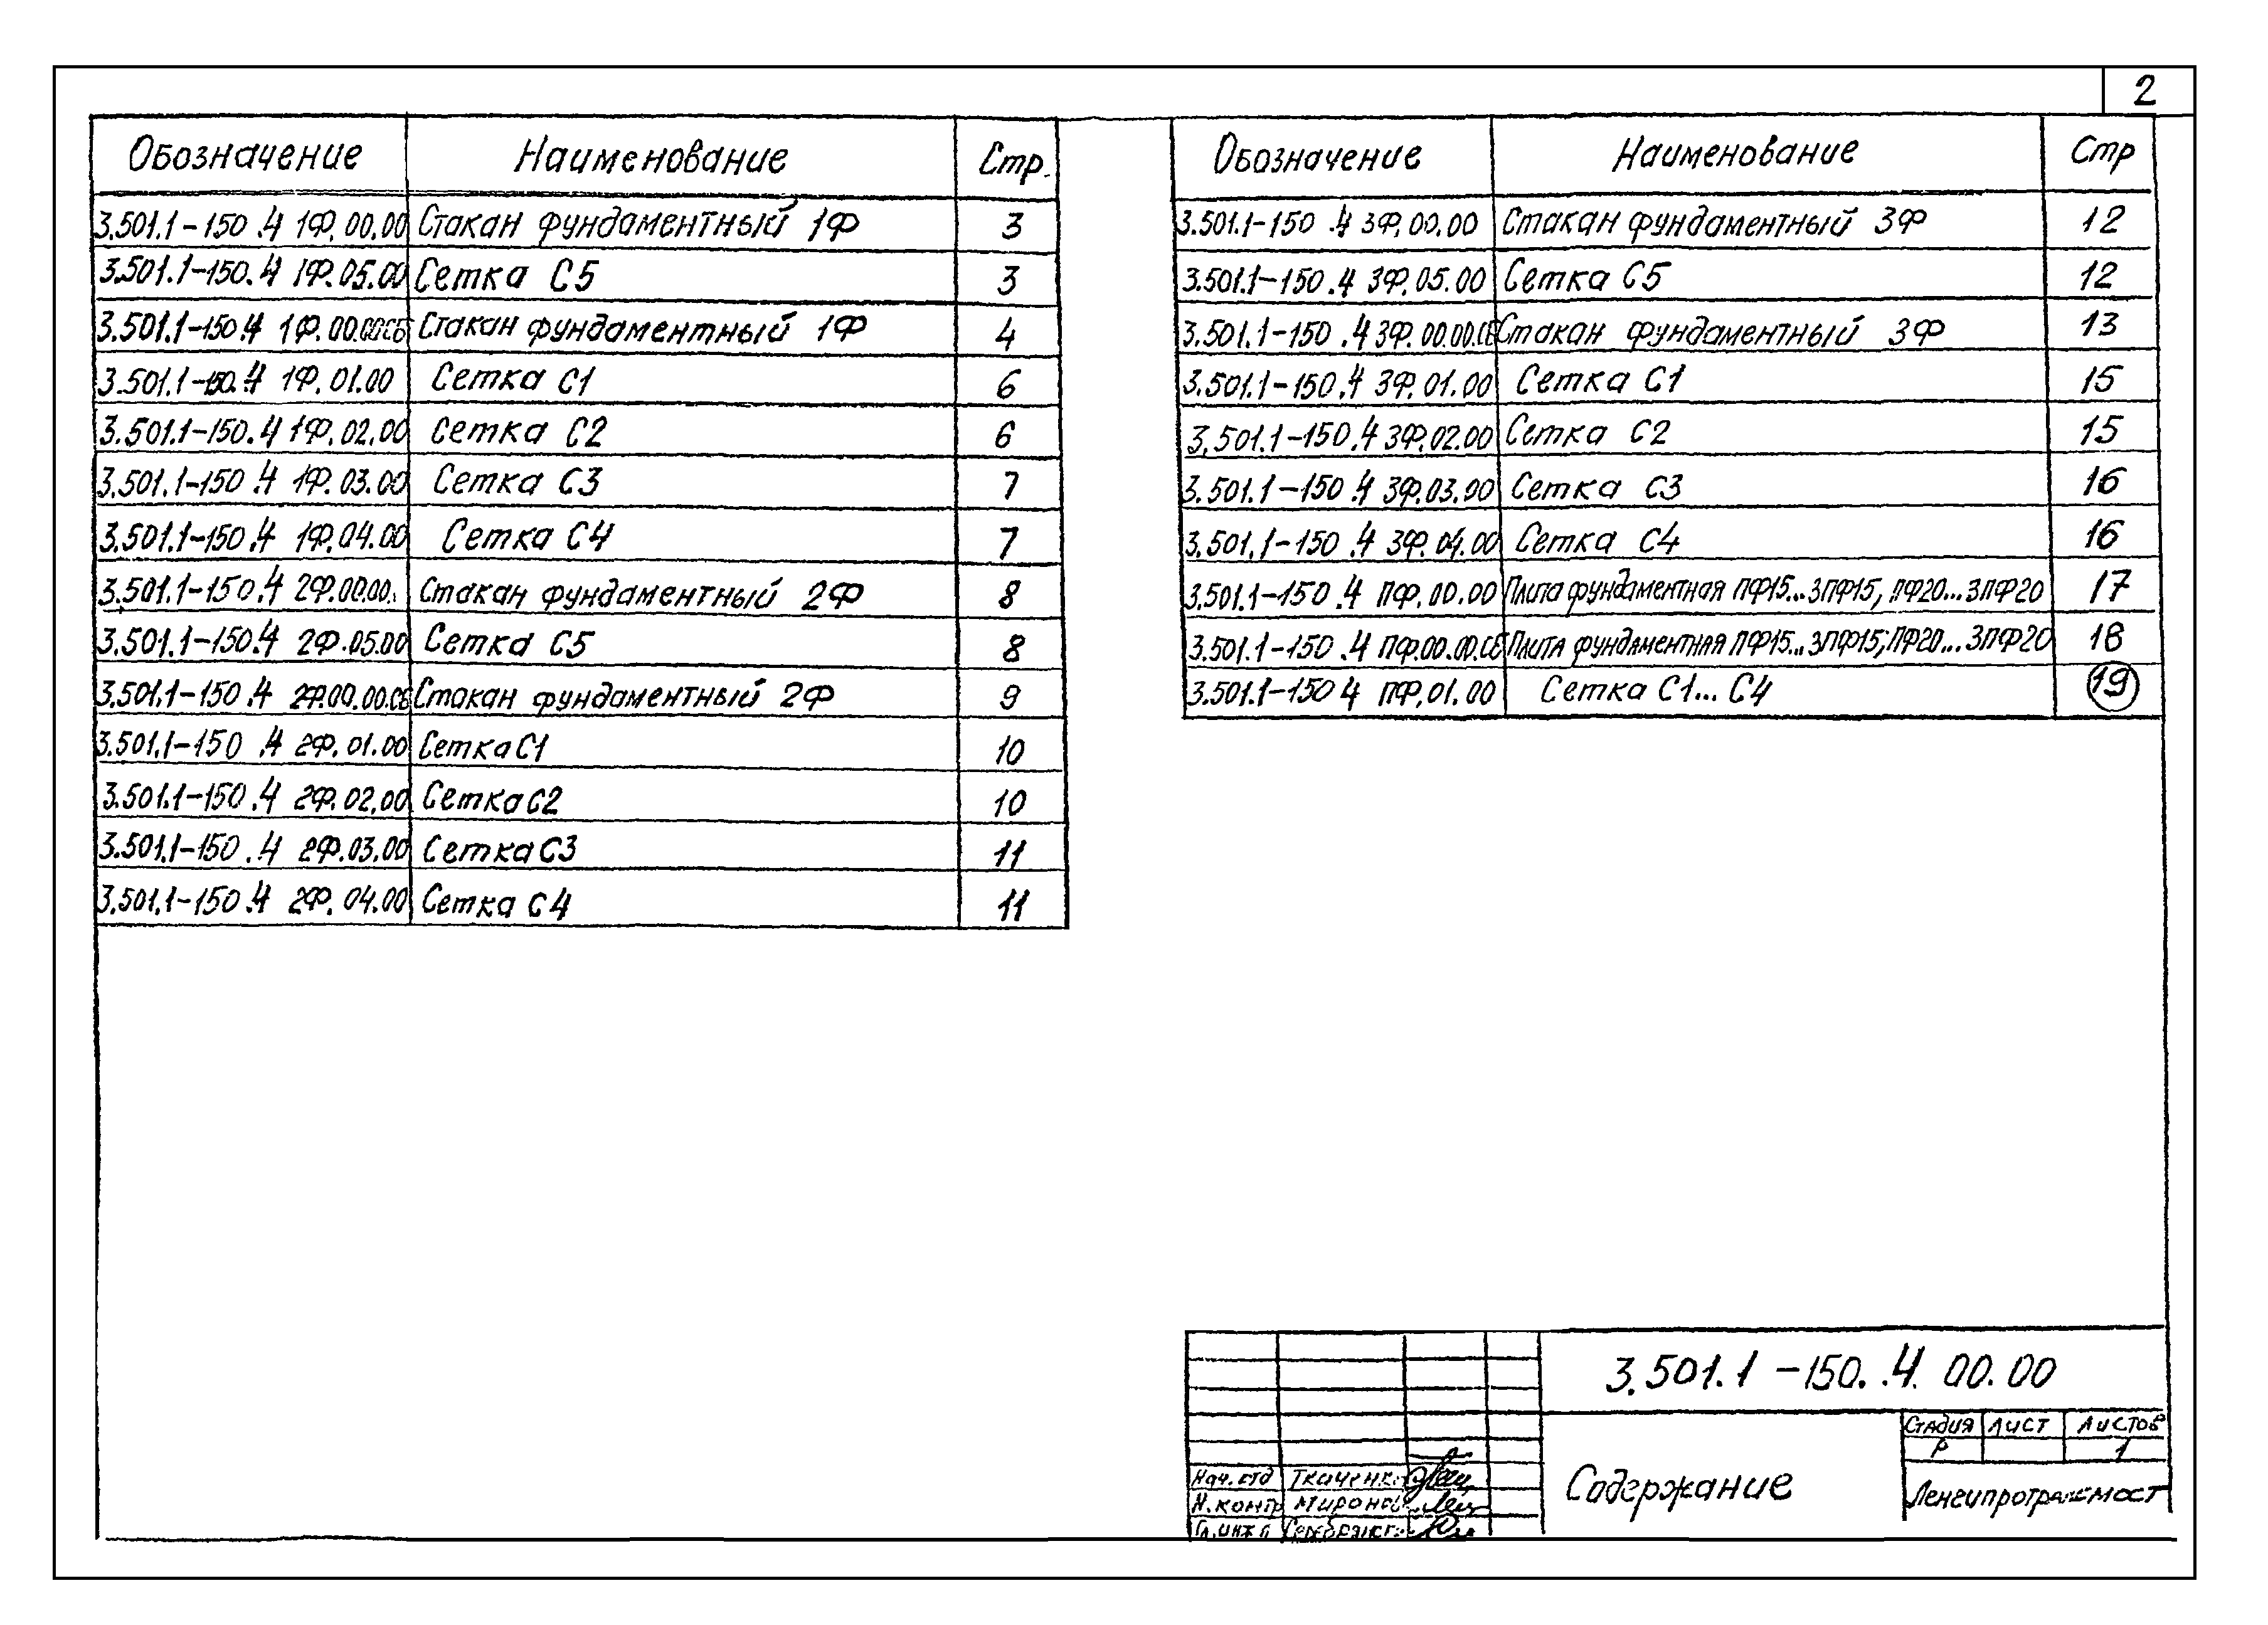 2
Обозначение Наименование Стр.
3.501.1-150.4 1Ф.00.00 Стакан фундаментный 1Ф 3
3.501.1-150.4 1Ф.05.00 Сетка С5 3
3.501.1-150.4 1Ф.00.00СБ Стакан фундаментный 1Ф 4
3.501.1-150.4 1Ф.01.00 Сетка С1 6
3.501.1-150.4 1Ф.02.00 Сетка С2 6
3.501.1-150.4 1Ф.03.00 Сетка С3 7
3.501.1-150.4 1Ф.04.00 Сетка С4 7
3.501.1-150.4 2Ф.00.00. Стакан фундаментный 2Ф 8
3.501.1-150.4 2Ф.05.00 Сетка С5 8
3.501.1-150.4 2Ф.00.00.СБ Стакан фундаментный 2Ф 9
3.501.1-150.4 2Ф.01.00 Сетка С1 10
3.501.1-150.4 2Ф.02.00 Сетка С2 10
3.501.1-150.4 2Ф.03.00 Сетка С3 11
3.501.1-150.4 2Ф.04.00 Сетка С4 11
Обозначение Наименование Стр
3.501.1-150.4 3Ф.00.00 Стакан фундаментный 3Ф 12
3.501.1-150.4 3Ф.05.00 Сетка С5 12
3.501.1-150.4 3Ф.00.00.СБ Стакан фундаментный 3Ф 13
3.501.1-150.4 3Ф.01.00 Сетка С1 15
3.501.1-150.4 3Ф.02.00 Сетка С2 15
3.501.1-150.4 3Ф.03.00 Сетка С3 16
3.501.1-150.4 3Ф.04.00 Сетка С4 16
3.501.1-150.4 ПФ.00.00 Плита фундаментная ПФ15...3ПФ15; ПФ20...3ПФ20 17
3.501.1-150.4 ПФ.00.00.СБ Плита фундаментная ПФ15...3ПФ15; ПФ20...3ПФ20 18
3.501.1-150 4 ПФ.01.00 Сетка С1...С4 19
3.501.1-150..4. 00.00
Стадия Лист Листов
Р 1
Содержание
Ленгипротрансмост
Нач. отд Ткаченко
Н.контр Миронов
Гл.инж п